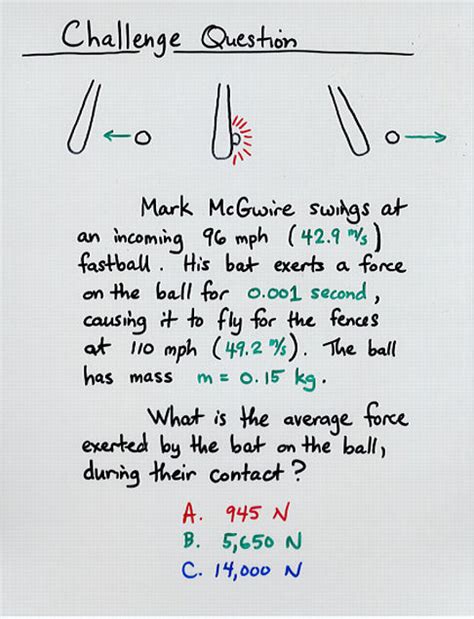 Challenge Question
Mark McGwire swings at
an incoming 96 mph (42.9 m/s)
fastball. His bat exerts a force
on the ball for 0.001 second,
causing it to fly for the fences
at 110 mph (49.2 m/s). The ball
has mass m = 0.15 kg.
What is the average force
exerted by the bat on the ball,
during their contact?
A. 945 N
B. 5,650 N
C. 14,000 N